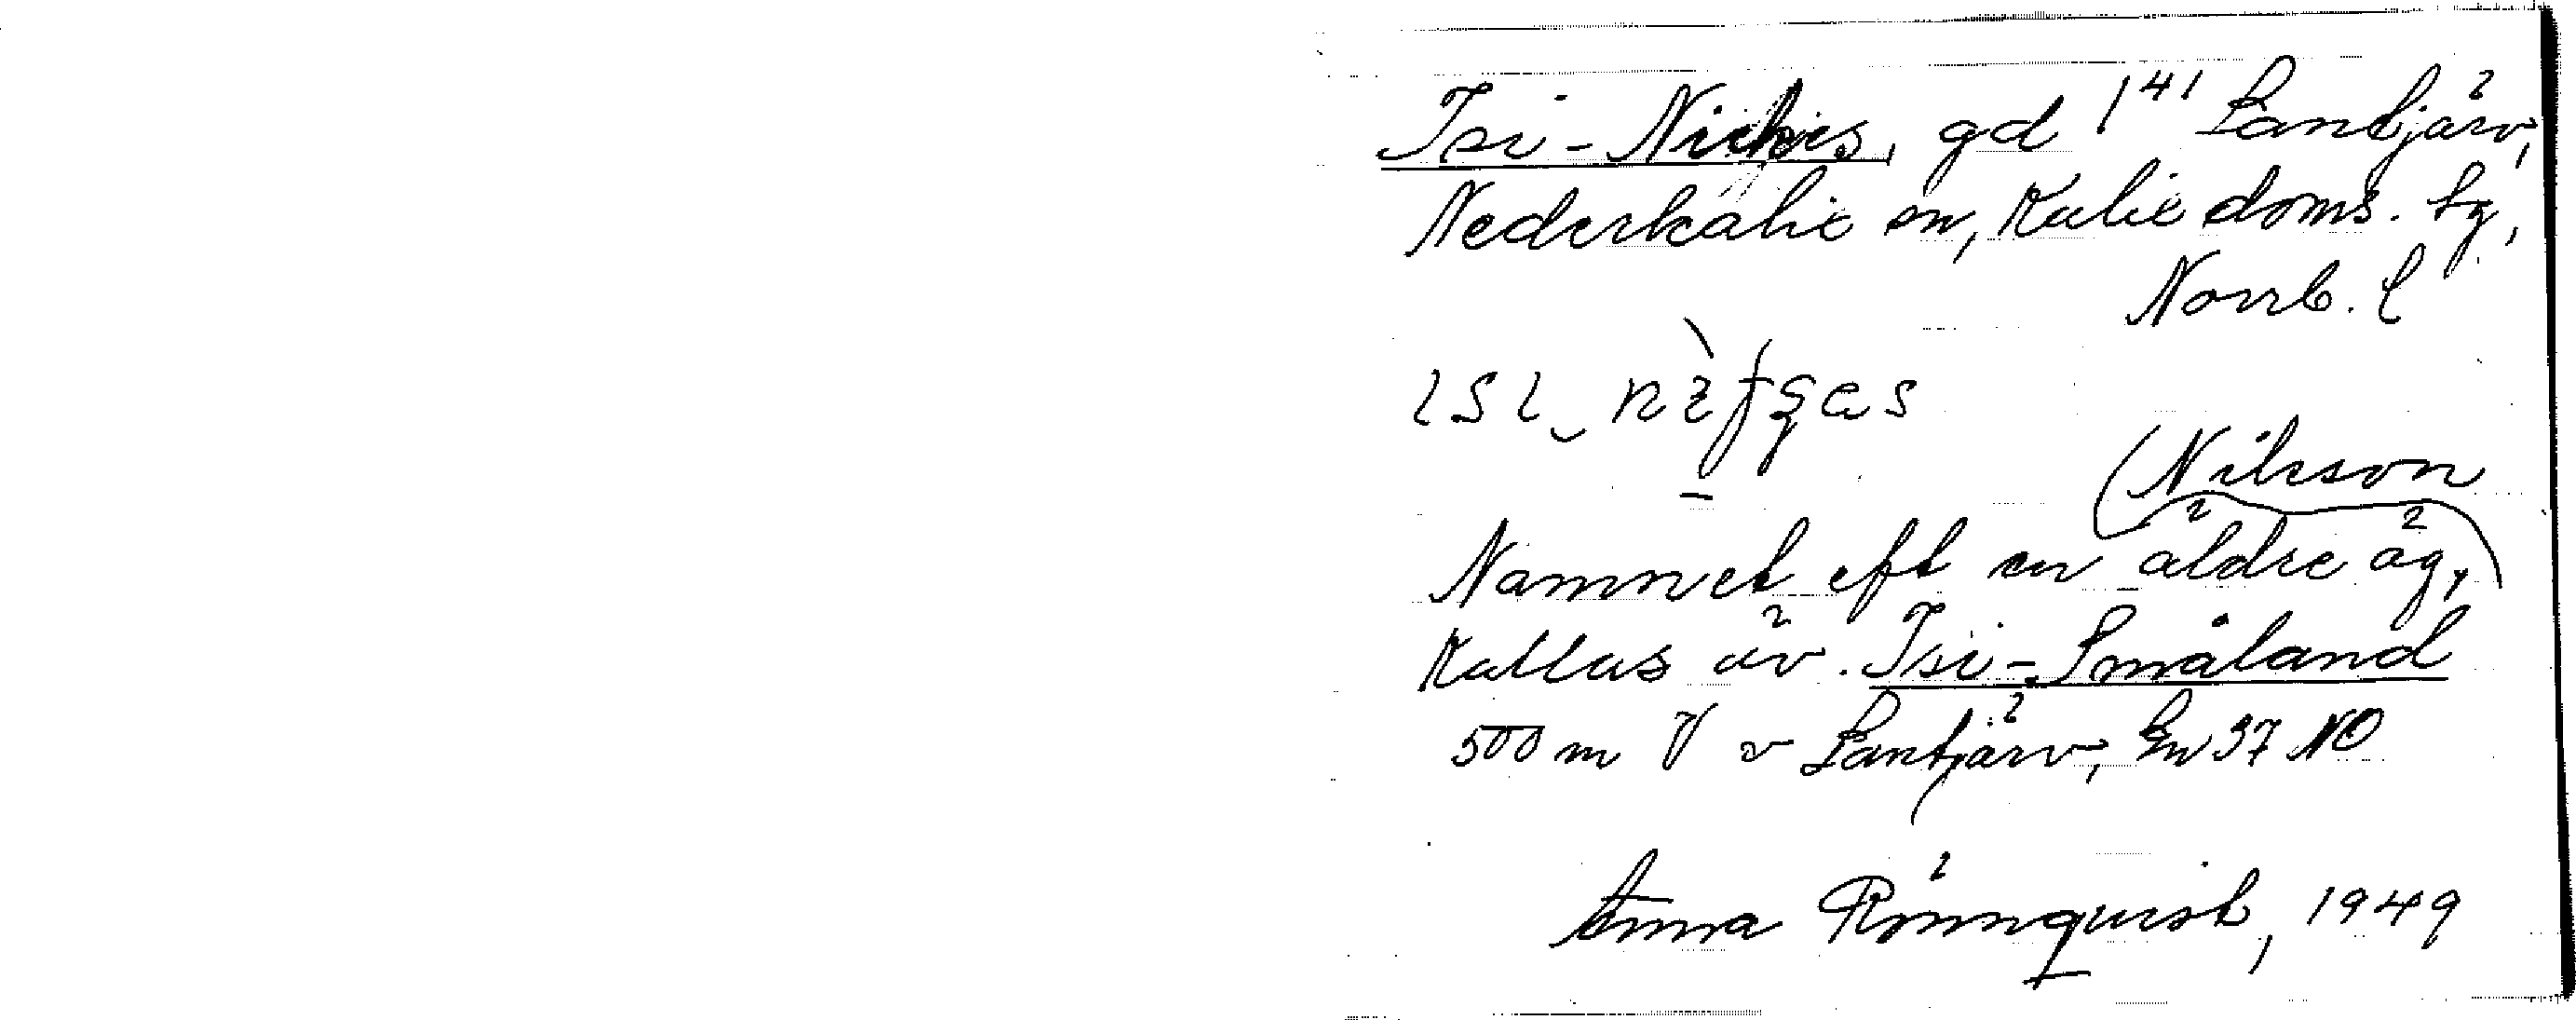 Isi-Nickes, gd 1⁴¹ Lantjärv,
Nederkalix sn, Kalix doms. tg,
Norrb. l
isi
(Nilsson
Namnet eft en äldre äg,
Kallas äv. Isi-Småland
500 m V v Lantjärv, Gn 37 NO
Anna Rönnquist, 1949